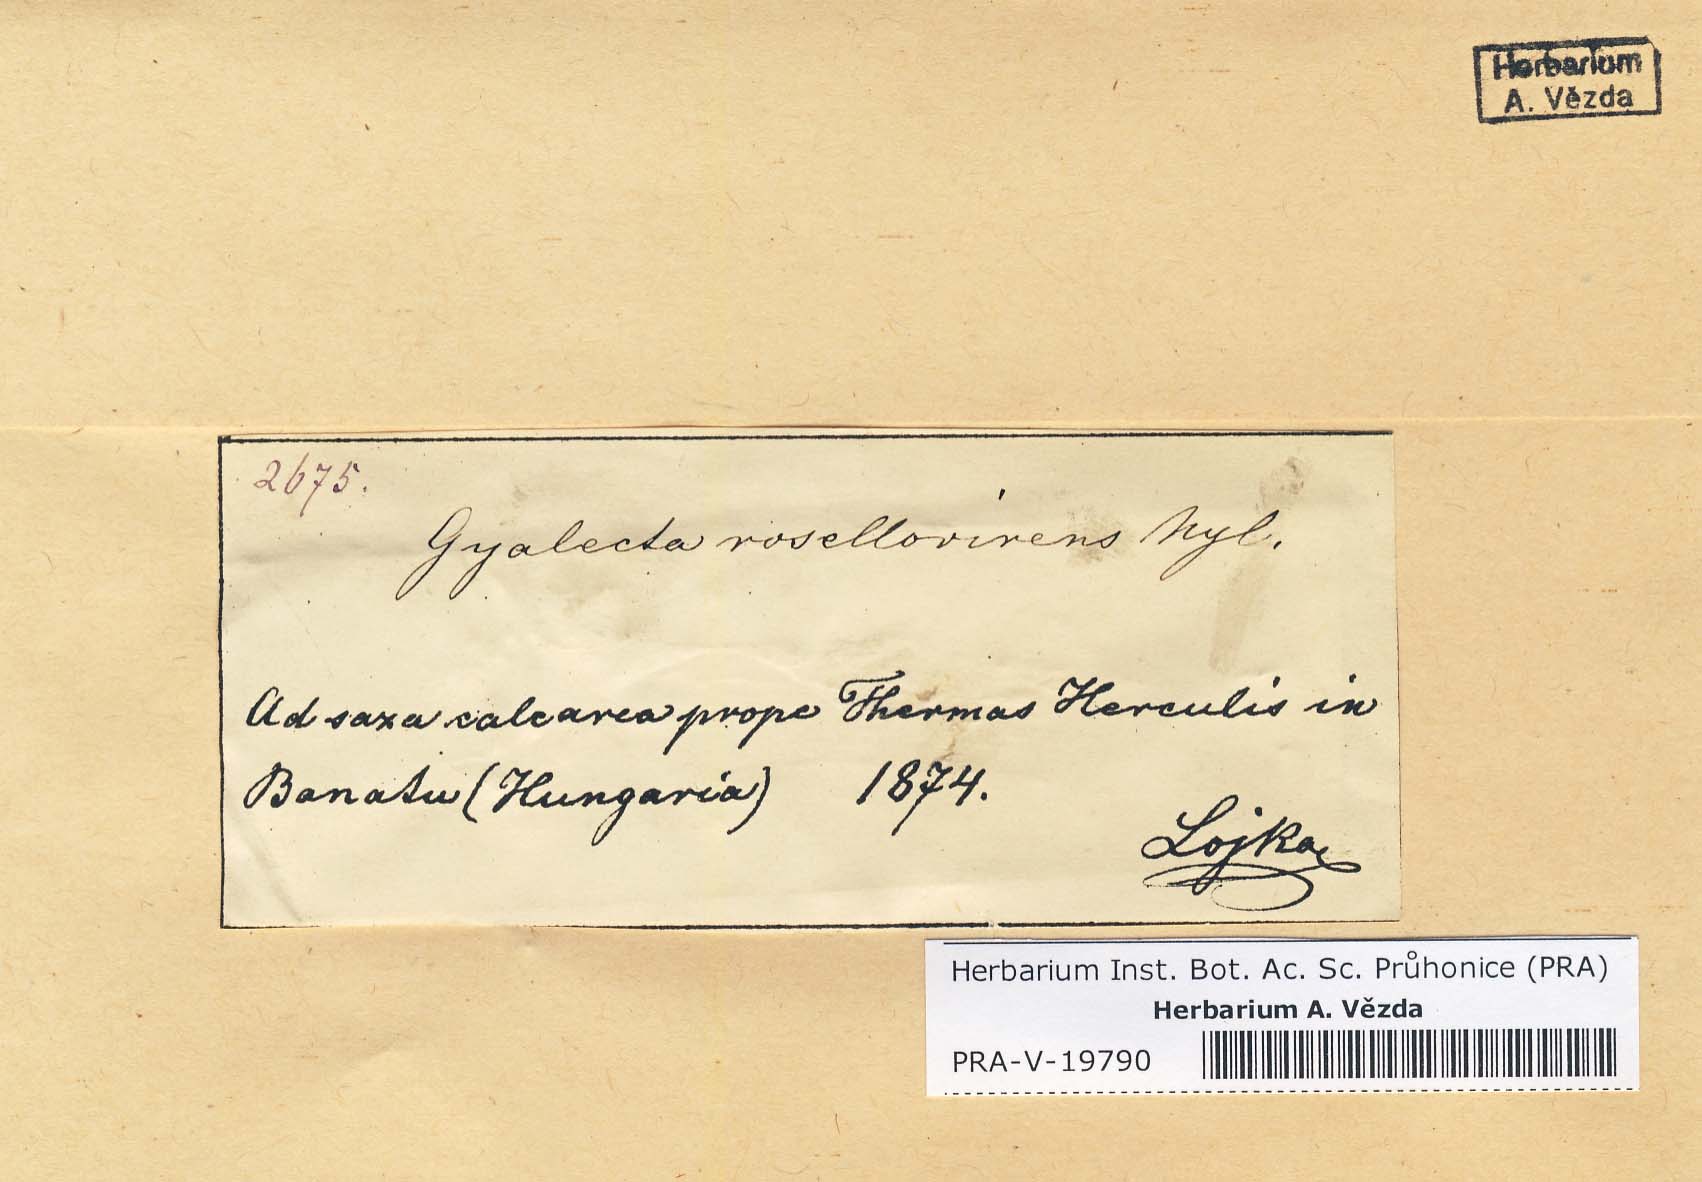 Herbarium
A. Vězda
2675.
Gyalecta rosellovirens Nyl.
Ad saxa calcarea prope Thermas Herculis in
Banatu (Hungaria) 1874.
Lojka
Herbarium Inst. Bot. Ac. Sc. Průhonice (PRA)
Herbarium A. Vězda
PRA-V-19790